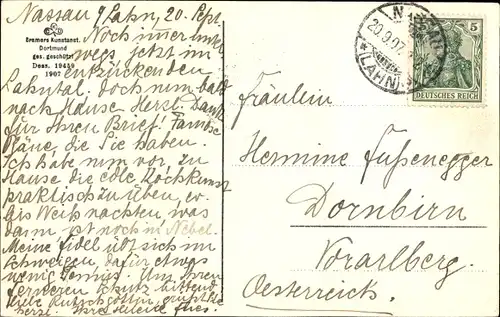 Nassau a/Lahn, 20. Sept.
Bremers Kunstanst.
Dortmund
ges. geschützt
Dess. 19459
1907
Noch immer unter-
wegs, jetzt im
entzückenden
Lahntal. doch nun bald
nach Hause. Herzl. Dank
für Ihren Brief! Famose
Pläne, die Sie haben.
Ich habe nun vor, zu
Hause die edle Kochkunst
praktisch zu üben, ev.
bis Weihnachten, was
dann ist noch in Nebel.
Meine Fidel übt sich im
Schweigen, dafür etwas
wenig Tennis. Um Ihren
ferneren Schutz bittend
liebe Rutschgöttin, grüßt Sie
herzl. Ihre
NASSAU
20.9.07
(LAHN)
5
DEUTSCHES REICH
Fräulein
Hermine Fussenegger
Dornbirn
Vorarlberg.
Oesterreich.